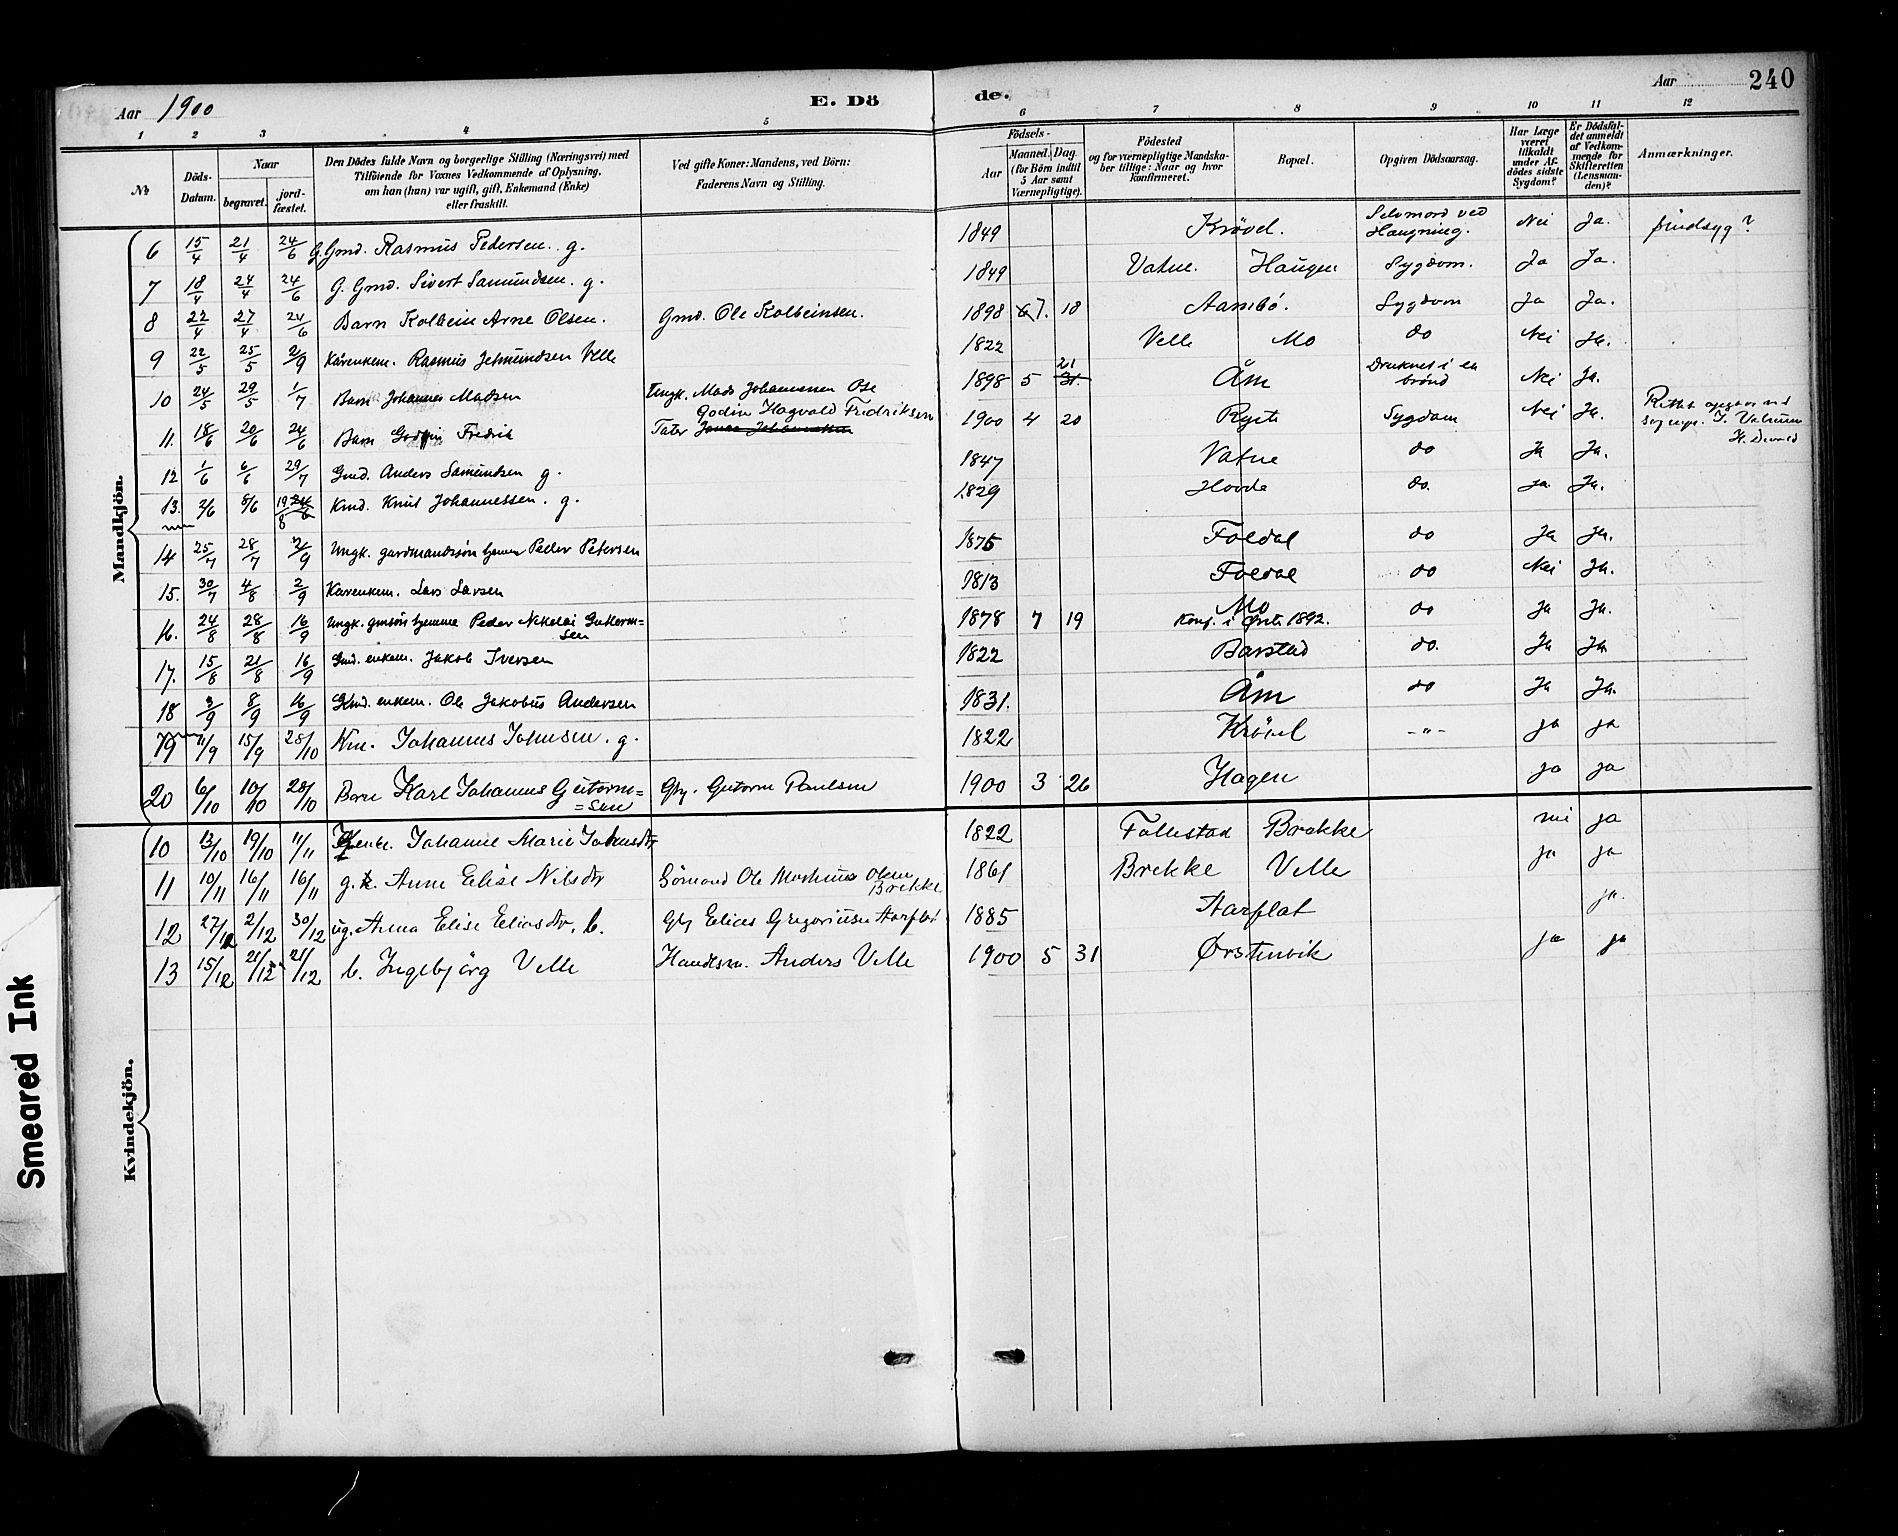 Aar 1900
E. Döde.
Aar 240
1 2 3 4 5 6 7 8 9 10 11 12
No
Döds-Datum.
Naar
begravet.
jord-fæstet.
Den Dödes fulde Navn og borgerlige Stilling (Næringsvei) med
Tilföiende for Voxnes Vedkommende af Oplysning,
om han (hun) var ugift, gift, Enkemand (Enke)
eller fraskilt.
Ved gifte Koner: Mandens, ved Börn:
Faderens Navn og Stilling.
Födsels-
Aar
Maaned. Dag.
(for Börn indtil
5 Aar samt
Værnepligtige).
Födested
og for værnepligtige Mandska-
ber tillige: Naar og hvor
konfirmeret.
Bopæl.
Opgiven Dödsaarsag.
Har Læge
været
tilkaldt
under Af-
dödes sidste
Sygdom?
Er Dödsfal-
det anmeldt
af Vedkom-
mende for
Skifteretten
(Lensman-
den)?
Anmærkninger.
Mandkjön.
6 15/4 21/4 24/6 G. Gmd. Rasmus Pedersen. g. 1849 Krövel. Selvmord ved Hængning. Nei Ja. Sindsyg?
7 18/4 24/4 24/6 G. Gmd. Sivert Samundsen. g. 1849 Vatne. Haugen Sygdom. Ja Ja.
8 22/4 27/4 24/6 Barn Kolbein Arne Olsen. Gmd. Ole Kolbeinsen. 1898 7. 18 Aambö. Sygdom Ja Ja.
9 22/5 25/5 2/9 Kårenkem. Rasmus Jetmundsen Velle 1822 Velle Mo do Nei Ja.
10 24/5 29/5 1/7 Barn Johannes Madsen Ungk. Mads Johannesen Ose 1898 5 21 31. Åm Druknet i en brönd Nei Ja.
11. 18/6 20/6 24/6 Barn Godtfin Fredrik Godin Hagvald Fredriksen
Tater Jonas Johannessen 1900 4 20 Ryste Sygdom Nei Ja. Rettet
12 1/6 6/6 29/7 Gmd. Anders Samundsen g. 1847 Vatne do Ja Ja.
13. 2/6 8/6 19/8 24/6 Kmd. Knut Johannessen. g. 1829 Hovde do. Ja Ja.
14 25/7 28/7 2/9 Ungk. gardmandssön hjemme Peder Petersen 1875 Foldal do Ja Ja.
15. 30/7 4/8 2/9 Kårenkem. Lars Larsen 1813 Foldal do Nei Ja.
16. 24/8 28/8 16/9 Ungk. gmsön hjemme Peder Nikolai Guttorm=
sen 1878 7 19 Mo
Konf. i Örst. 1892. do Ja Ja.
17. 15/8 21/8 16/9 Gmd. enkem. Jakob Iversen 1822 Barstad do. Ja Ja
18 3/9 8/9 16/9 Gmd. enkem. Ole Jakobus Andersen 1831. Åm do Ja Ja.
19 11/9 15/9 28/10 Km. Johannes Johnsen. g. 1822 Krövel -"- ja ja
20 6/10 10/10 28/10 Barn Karl Johannes Guttorm=
=sen Gbr. Guttorm Paulsen 1900 3 26 Hagen ja ja
Kvindekjön.
10 13/10 19/10 11/11 enke. Johanne Marie Johnsdtr 1822 Follestad Brekke nei ja
11 10/11 16/11 16/11 g.k. Anne Elise Nilsdtr Sömand Ole Martinus Olsen
Brekke 1861 Brekke Velle ja ja
12 27/12 2/12 30/12 ug. Anna Elise Eliasdtr, b. Gbr Elias Gregoriusen Aarflot 1885 Aarflot ja.
13 15/12 21/12 21/12 b. Ingebjörg Velle Handlsm. Anders Velle 1900 5 31 Ørstenvik ja ja
Smeared Ink